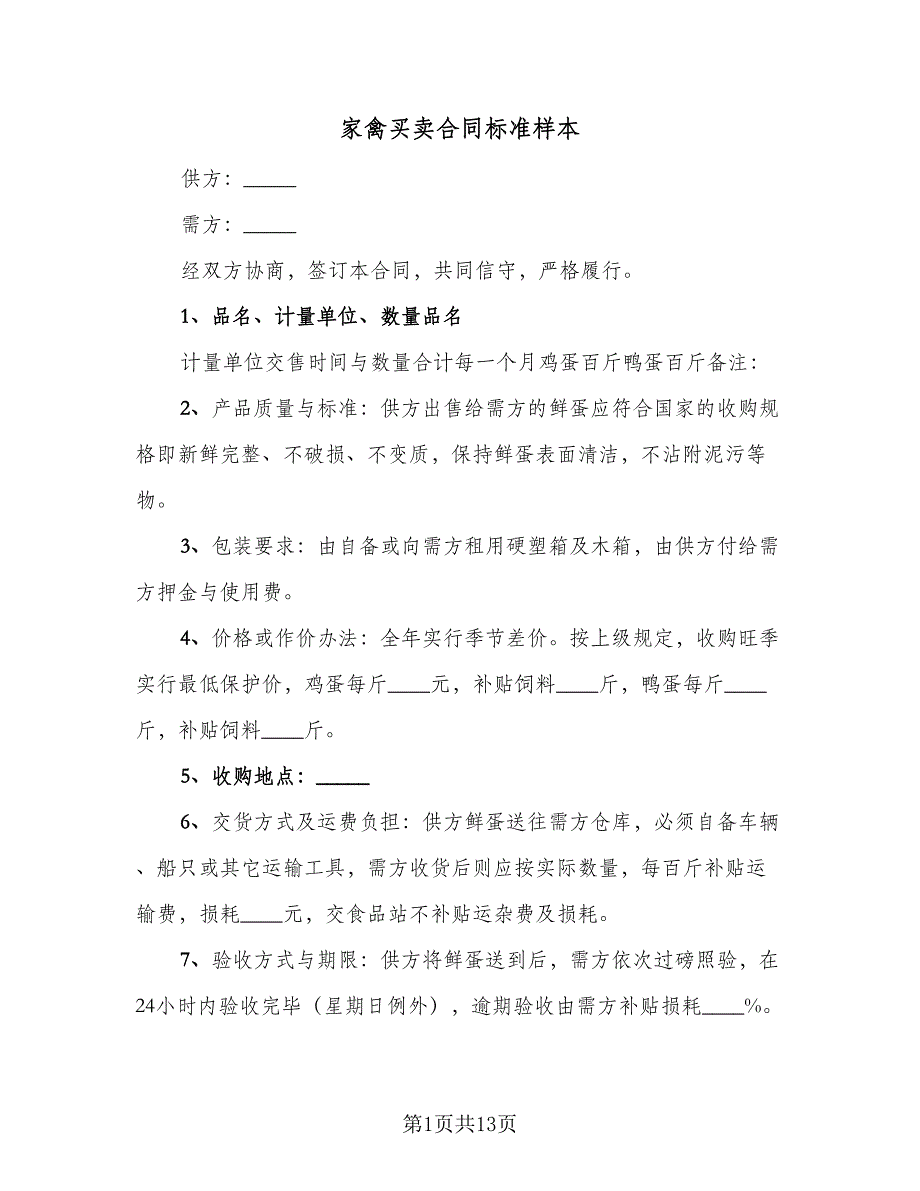 家禽买卖合同标准样本
供方：_____
需方：_____
经双方协商，签订本合同，共同信守，严格履行。
1、品名、计量单位、数量品名
计量单位交售时间与数量合计每一个月鸡蛋百斤鸭蛋百斤备注：
2、产品质量与标准：供方出售给需方的鲜蛋应符合国家的收购规
格即新鲜完整、不破损、不变质，保持鲜蛋表面清洁，不沾附泥污等
物。
3、包装要求：由自备或向需方租用硬塑箱及木箱，由供方付给需
方押金与使用费。
4、价格或作价办法：全年实行季节差价。按上级规定，收购旺季
实行最低保护价，鸡蛋每斤____元，补贴饲料____斤，鸭蛋每斤____
斤，补贴饲料____斤。
5、收购地点：_____
6、交货方式及运费负担：供方鲜蛋送往需方仓库，必须自备车辆
、船只或其它运输工具，需方收货后则应按实际数量，每百斤补贴运
输费，损耗____元，交食品站不补贴运杂费及损耗。
7、验收方式与期限：供方将鲜蛋送到后，需方依次过磅照验，在
24小时内验收完毕（星期日例外），逾期验收由需方补贴损耗____%。
第1页共13页